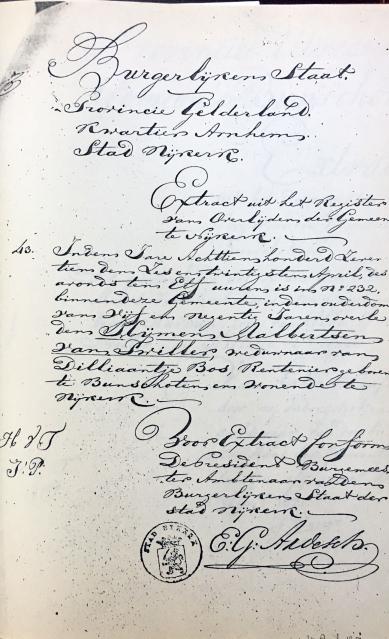 Burgerlijkens Staat.
Provincie Gelderland.
Kwartier Arnhem.
Stad Nijkerk.
Extract uit het Register
van Overlijden der Gemeen
te Nijkerk.
43. In den Jare Achttienhonderd Zeven
tien den Zesentwintigsten April, des
avonds ten Elf uuren is in No 232,
binnen deze Gemeente, in den ouderdom
van vijf en negentig Jaren, overle
den Rijmen Malbertsen
van Twiller weduwnaar van
Dilliaantje Bos, Rentenier geboren
te Bunschoten en wonende te
Nijkerk.
H V T
J. P.
Voor Extract Conform
De President Burgemees
ter Ambtenaar van den
Burgerlijken Staat der
stad Nijkerk.
STAD NYKERK
E. G.